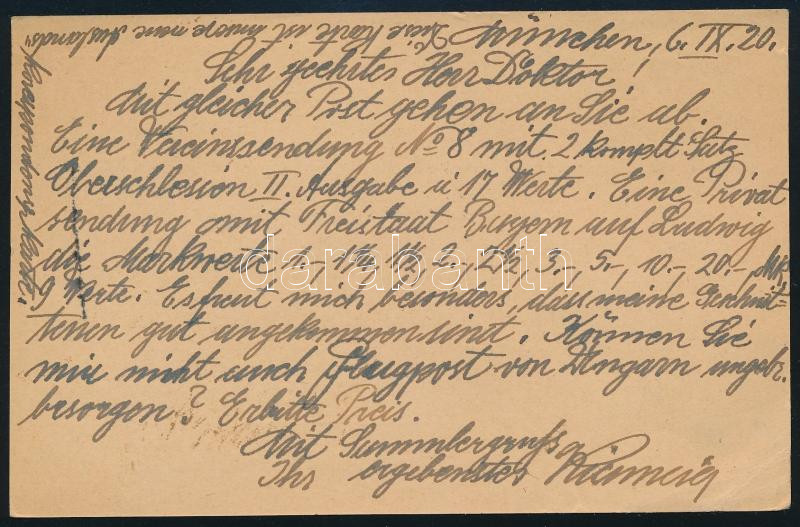 München, 6. IX. 20.
Sehr geehrter Herr Doktor!
Mit gleicher Post gehen an Sie ab.
Eine Vereinssendung No 8 mit 2 komplt Satz
Oberschlesien II. Ausgabe u 17 Werte. Eine Privat
sendung mit Freistaat Bayern auf Ludwig
die Markwerte 1.- 1¼, 1½, 2.-, 2½, 3.-, 5.-, 10.-, 20.- Mk
9 Werte. Es freut mich besonders, dass meine Geschnit-
tenen gut angekommen sind. Können Sie
mir nicht auch Flugpost von Ungarn ungebr.
besorgen? Erbitte Preis.
Mit Sammlergruss
Ihr ergebenster
Diese Karte ist unsere neue Auslands-
korrespondenzkarte.
darabanth